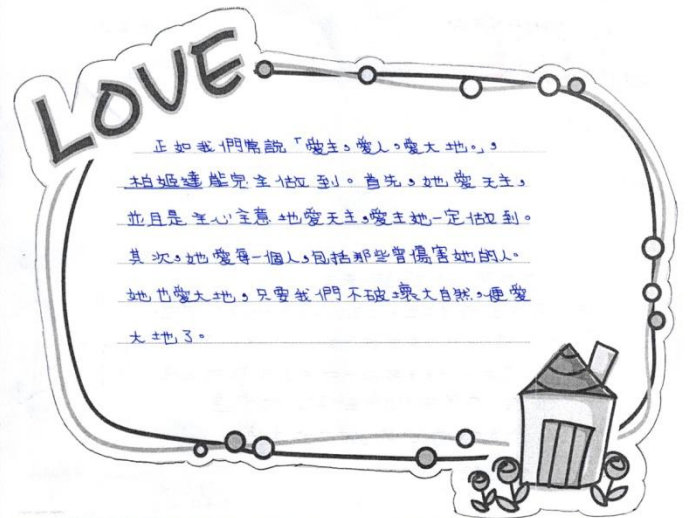 LOVE
正如我們常說「愛主，愛人，愛大地。」，
柏姬達能完全做到。首先，她愛天主，
並且是全心全意地愛天主，愛主她一定做到。
其次，她愛每一個人，包括那些曾傷害她的人。
她也愛大地，只要我們不破壞大自然，便愛
大地了。